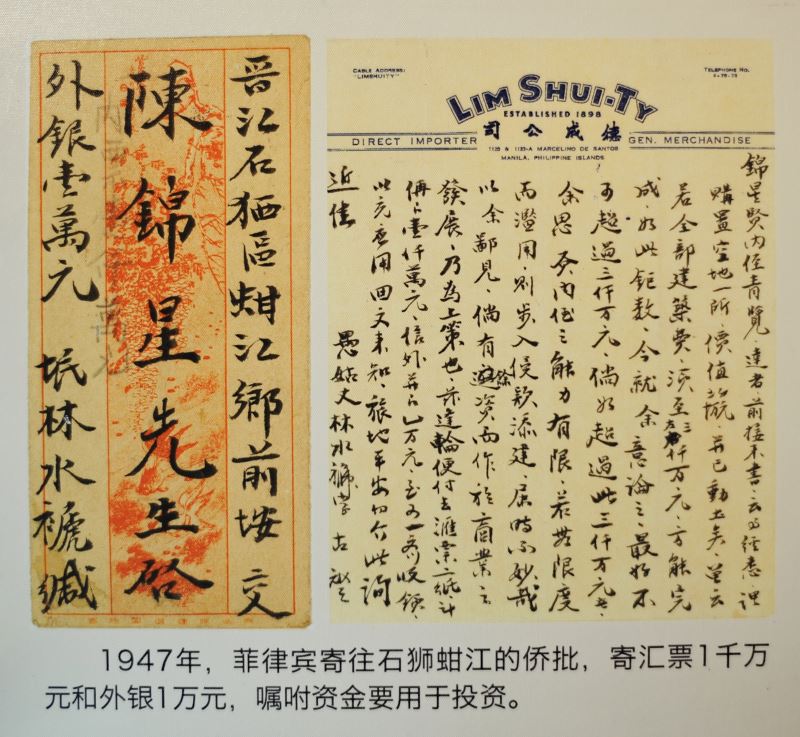 晋江石獅區蚶江鄉前埯 交
陳錦星先生啟
外銀壹萬元 岷林水褫緘
CABLE ADDRESS:
"LIMSHUITY"
TELEPHONE NO.
LIM SHUI-TY
ESTABLISHED 1898
司公成德
DIRECT IMPORTER
GEN. MERCHANDISE
1125 & 1133-A MARCELINO DE SANTOS
MANILA, PHILIPPINE ISLANDS
錦星賢內侄青覽，達者前接來書，云及經意理
購置空地一所，價值 並已動土矣，并云
若全部建築費須至 仟万元，方能完
成，如此鉅数，今就余意論之，最好不
可超過三仟万元，倘如超過此三仟万元者，
余思 賢內侄之能力有限，若無限度
而濫用，則步入侵款添建，屆時不妙哉
以余鄙見，倘有餘資而作於商業之
發展，乃為上策也，茲逢輪便付去滙票一紙，計
俩壹仟萬元，信外并 万元，至可一齊收領，
此充應用，回文來知，旅地平安，勿介，此詢
近佳 愚姑丈林水褫字 古
1947年，菲律宾寄往石狮蚶江的侨批，寄汇票1千万
元和外银1万元，嘱咐资金要用于投资。